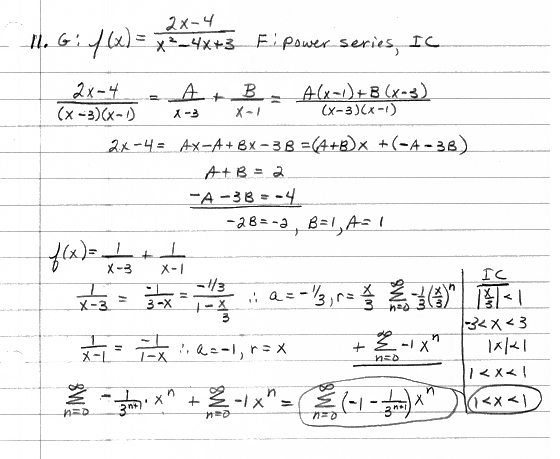 11. G: f(x) = (2x-4)/(x²-4x+3) F: power series, IC
(2x-4)/((x-3)(x-1)) = A/(x-3) + B/(x-1) = (A(x-1)+B(x-3))/((x-3)(x-1))
2x-4 = Ax-A+Bx-3B = (A+B)x + (-A-3B)
A+B = 2
-A-3B = -4
-2B = -2, B=1, A=1
f(x) = 1/(x-3) + 1/(x-1)
1/(x-3) = -1/(3-x) = (-1/3)/(1-x/3) ∴ a = -1/3, r = x/3 ∞Σn=0 -1/3(x/3)ⁿ
1/(x-1) = -1/(1-x) ∴ a = -1, r = x + ∞Σn=0 -1xⁿ
∞Σn=0 -1/3ⁿ⁺¹ · xⁿ + ∞Σn=0 -1xⁿ = ∞Σn=0 (-1 - 1/3ⁿ⁺¹)xⁿ
IC
|x/3| < 1
-3<x<3
|x|<1
1<x<1
1<x<1